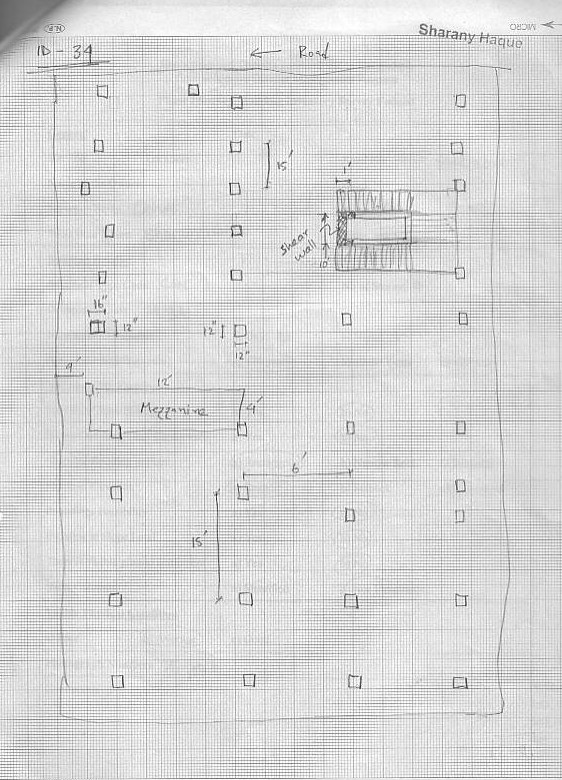 MICRO
Sharany Haque
ID - 34
← Road
15'
1'
shear wall
10'
16"
12"
12"
12"
9'
12'
Mezzanine
4'
6'
15'